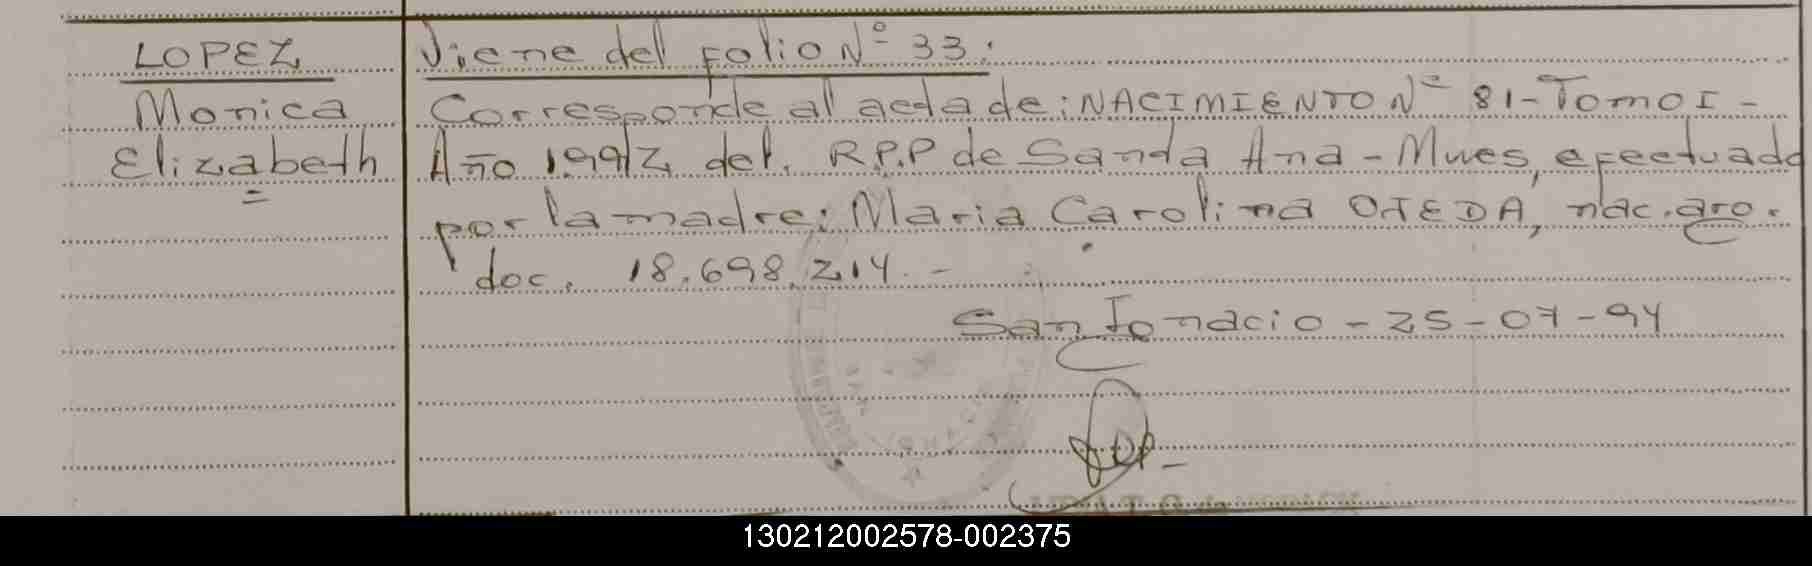 LOPEZ
Monica
Elizabeth
Viene del folio Nº 33:
Corresponde al acta de: NACIMIENTO Nº 81-Tomo I-
Año 1.992 del. R.P.P de Santa Ana - Mnes, efectuado
por la madre: Maria Carolina OJEDA, nac. arg.
doc. 18.698.214. -
San Ignacio - 25-07-94
130212002578-002375